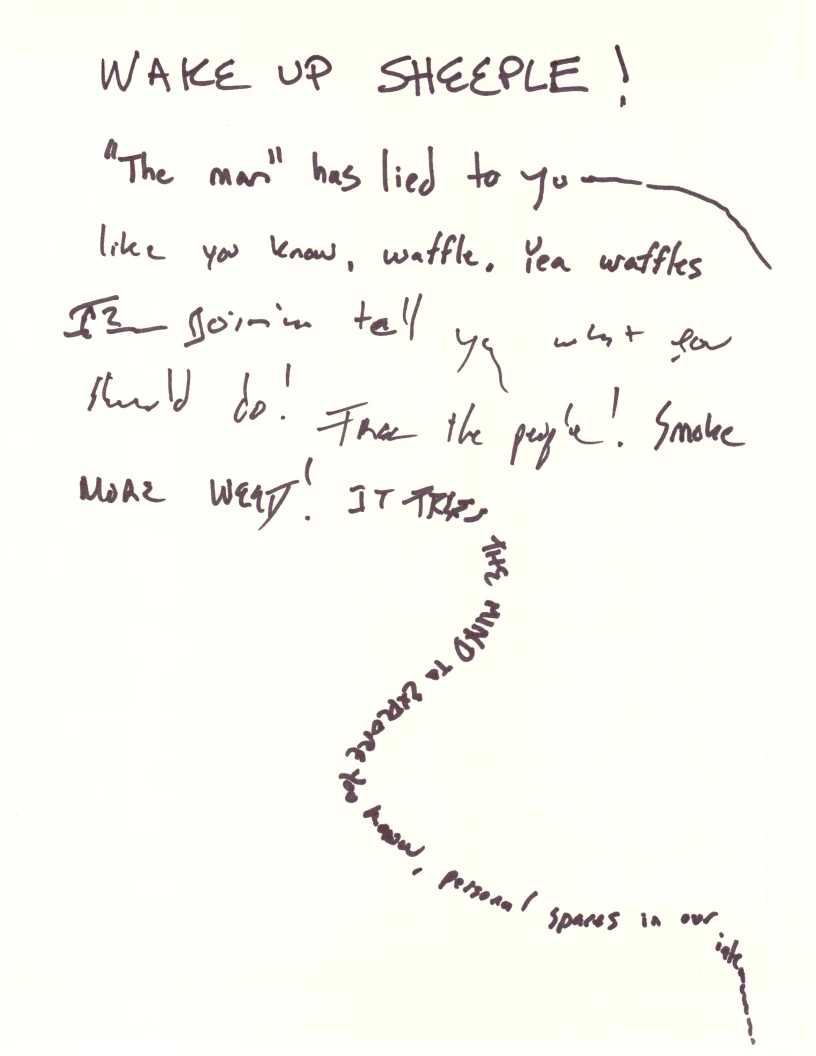 WAKE UP SHEEPLE!
"The man" has lied to yo
like you know, waffle. Yea waffles
tell ya what you
should do! Free the people! Smoke
MORE WEED! IT FREES
THE MIND TO EXPLORE YOU KNOW, personal spaces in our